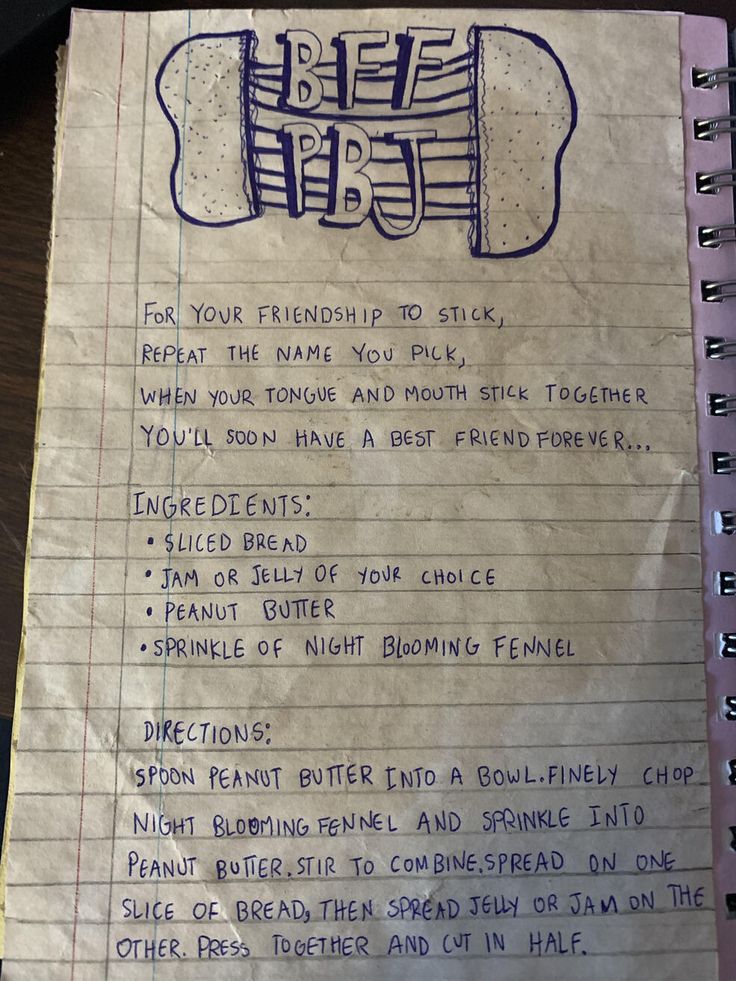 BFF
PBJ
FOR YOUR FRIENDSHIP TO STICK,
REPEAT THE NAME YOU PICK,
WHEN YOUR TONGUE AND MOUTH STICK TOGETHER
YOU'LL SOON HAVE A BEST FRIEND FOREVER...
INGREDIENTS:
• SLICED BREAD
• JAM OR JELLY OF YOUR CHOICE
• PEANUT BUTTER
• SPRINKLE OF NIGHT BLOOMING FENNEL
DIRECTIONS:
SPOON PEANUT BUTTER INTO A BOWL. FINELY CHOP
NIGHT BLOOMING FENNEL AND SPRINKLE INTO
PEANUT BUTTER. STIR TO COMBINE. SPREAD ON ONE
SLICE OF BREAD, THEN SPREAD JELLY OR JAM ON THE
OTHER. PRESS TOGETHER AND CUT IN HALF.